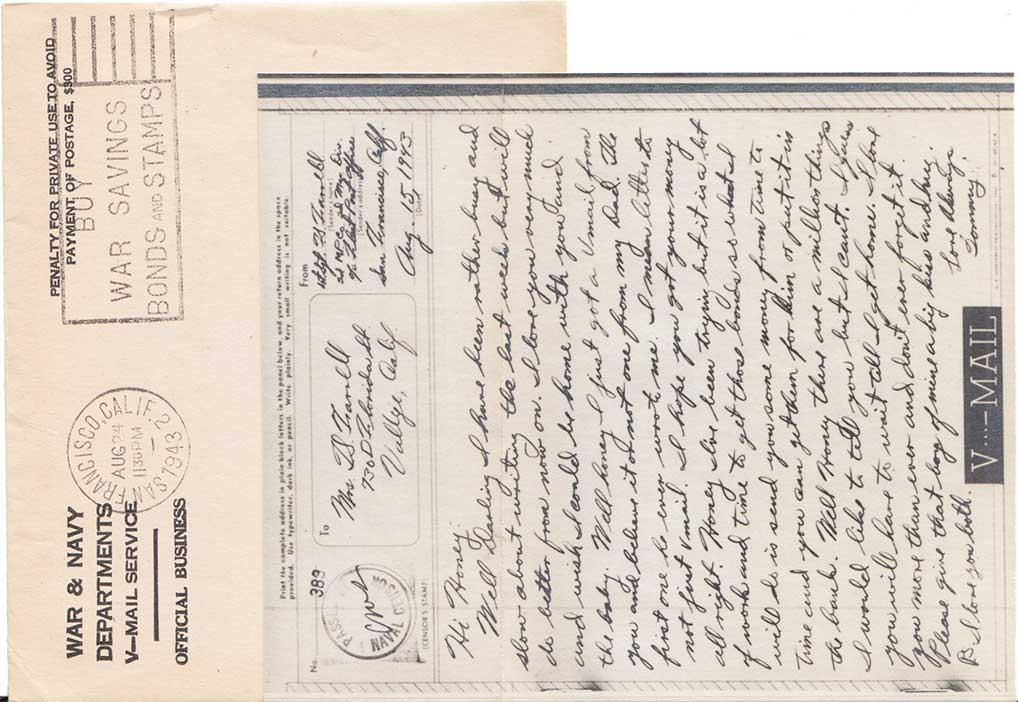 WAR & NAVY
DEPARTMENTS
V—MAIL SERVICE
OFFICIAL BUSINESS
SAN FRANCISCO, CALIF.
AUG 24
11 30 PM
1943
2
PENALTY FOR PRIVATE USE TO AVOID
PAYMENT OF POSTAGE, $300
BUY
WAR SAVINGS
BONDS AND STAMPS
Print the complete address in plain block letters in the panel below, and your return address in the space
provided. Use typewriter, dark ink, or pencil. Write plainly. Very small writing is not suitable.
No. 389
PASSED
NAVAL CENSOR
(CENSOR'S STAMP)
To
Mrs.
730 D Florida St
Calif.
From
(Sender's name)
(Sender's address)
San Francisco, Calif
Aug. 15 1943
(Date)
Hi Honey
Well Darling I have been rather busy and
slow about writing the last weeks but will
do better from now on. I love you very much
and wish I could be home with you and
the baby. Well honey I just got a Vmail from
you and believe it or not one from my Dad. The
first one he ever wrote me. I mean letter to
not first Vmail. I hope you got your money
all right. Honey I've been trying but it is a lot
of work and time to get those bonds so what I
will do is send you some money from time to
time and you can get them for him or put it in
the bank. Well Honey there are a million things
I would like to tell you but I cant. I guess
you will have to wait till I get home. I love
you more than ever and don't ever forget it.
Please give that boy of mine a big kiss and hug.
I love you both. Love Always
V···—MAIL